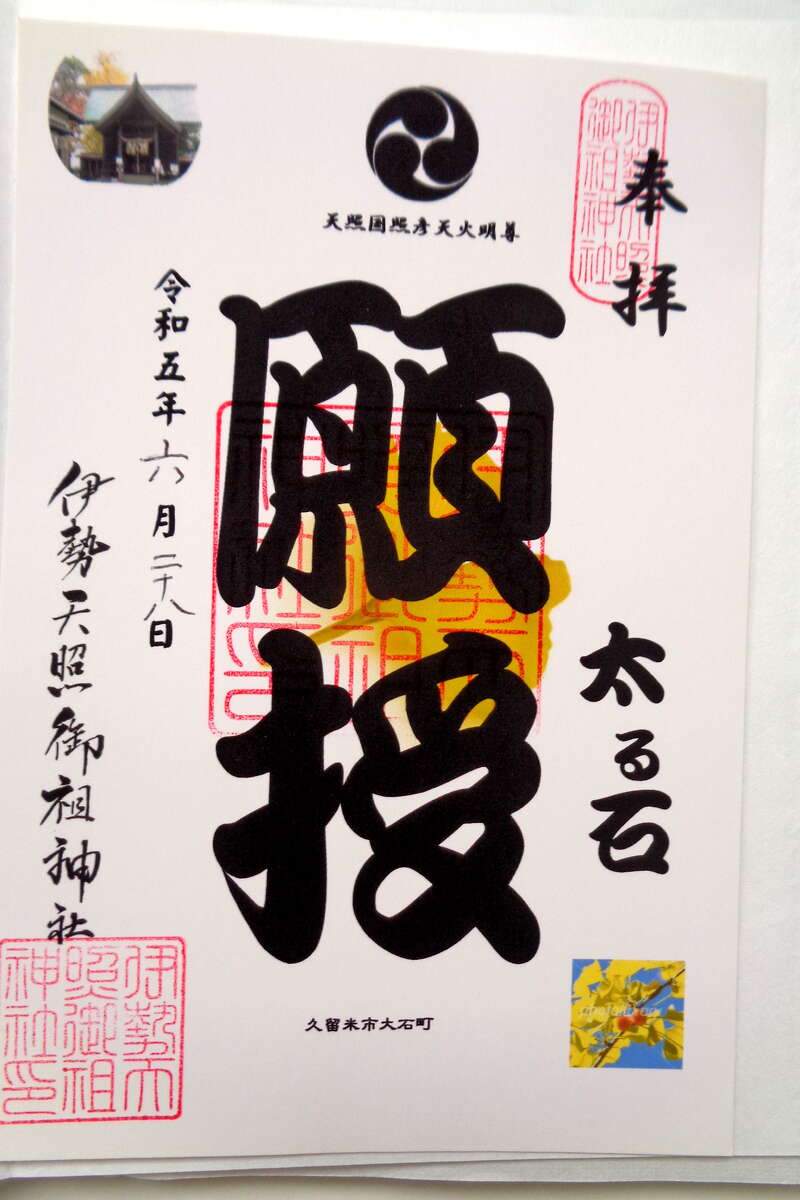 奉拝
伊勢天照
御祖神社
天照国照彦天火明尊
太る石
願授
令和五年六月二十八日
伊勢天照御祖神社
伊勢天
照御祖
神社印
久留米市大石町